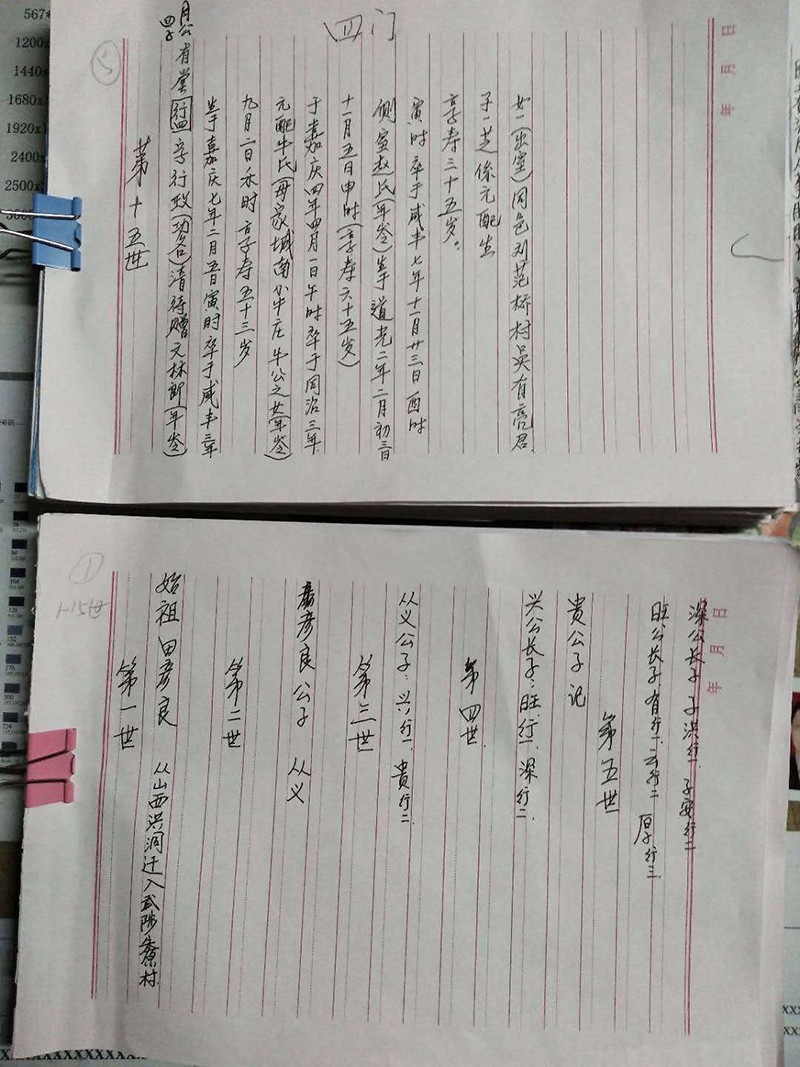 四门
5
第十五世
月公四子 有堂(行四)字行政(功名)清待赠文林郎(年岁)
生于嘉庆七年二月五日寅时卒于咸丰三年
九月二日未时 享寿五十三岁
元配牛氏(母家)城南小牛庄牛公之女(年岁)
于嘉庆四年四月一日午时卒于同治三年
十一月五日申时(享寿六十五岁)
侧室赵氏(年岁)生于道光二年二月初三日
寅时卒于咸丰七年十一月廿三日酉时
享寿三十五岁。
子一芝係元配生
女一(出室)同邑刘范桥村吴有亮君
年 月 日
1
1-15世
第一世
始祖田彦良 从山西洪洞迁入武陟 村
第二世
彦良公子 从义
第三世
从义公子:兴行一、贵行二
第四世
兴公长子:旺行一、深行二
贵公子 记
第五世
旺公长子 有行一、云行二 厚行三
深公长子 子洪行一、子安行二
年 月 日
567*
1200x
1440x
1680x
1920x
2400
2500x